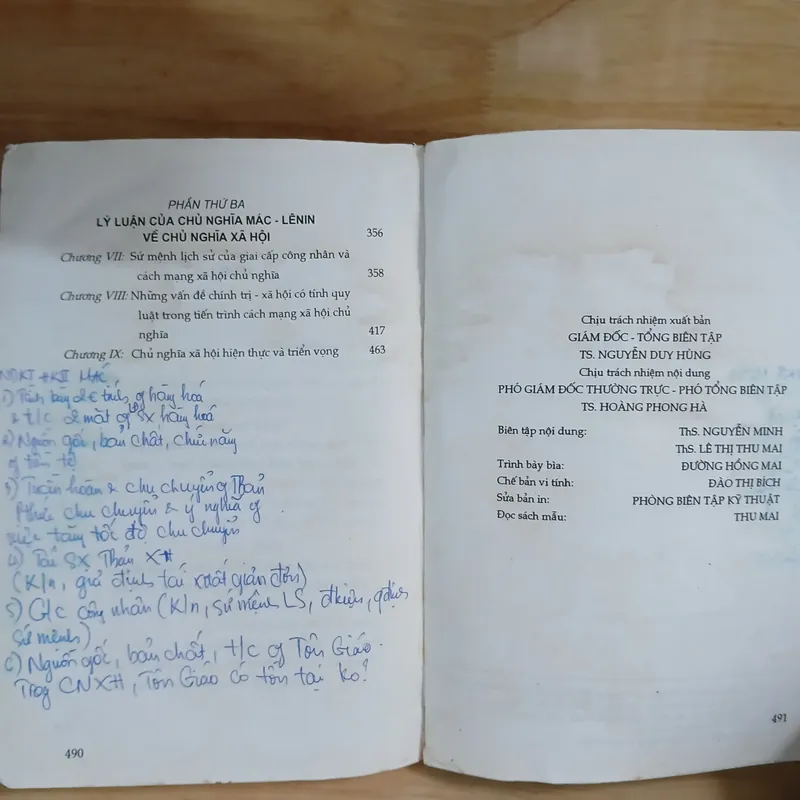 PHẦN THỨ BA
LÝ LUẬN CỦA CHỦ NGHĨA MÁC - LÊNIN
VỀ CHỦ NGHĨA XÃ HỘI 356
Chương VII: Sứ mệnh lịch sử của giai cấp công nhân và
cách mạng xã hội chủ nghĩa 358
Chương VIII: Những vấn đề chính trị - xã hội có tính quy
luật trong tiến trình cách mạng xã hội chủ
nghĩa 417
Chương IX: Chủ nghĩa xã hội hiện thực và triển vọng 463
MÁC
1) Trình bày 2 tính hàng hoá
& t/c 2 mặt SX hàng hoá
2) Nguồn gốc, bản chất, chức năng
tiền tệ
3) Tuần hoàn & chu chuyển
chu chuyển & ý nghĩa
việc tăng tốc độ chu chuyển
4) Tái SX XH
(K/n, giả định tái xuất giản đơn)
5) G/c công nhân (K/n, sứ mệnh LS, đkiện,
sứ mệnh)
6) Nguồn gốc, bản chất, t/c Tôn Giáo.
Trog CNXH, Tôn Giáo có tồn tại ko?
490
Chịu trách nhiệm xuất bản
GIÁM ĐỐC - TỔNG BIÊN TẬP
TS. NGUYỄN DUY HÙNG
Chịu trách nhiệm nội dung
PHÓ GIÁM ĐỐC THƯỜNG TRỰC - PHÓ TỔNG BIÊN TẬP
TS. HOÀNG PHONG HÀ
Biên tập nội dung: ThS. NGUYỄN MINH
ThS. LÊ THỊ THU MAI
Trình bày bìa: ĐƯỜNG HỒNG MAI
Chế bản vi tính: ĐÀO THỊ BÍCH
Sửa bản in: PHÒNG BIÊN TẬP KỸ THUẬT
Đọc sách mẫu: THU MAI
491